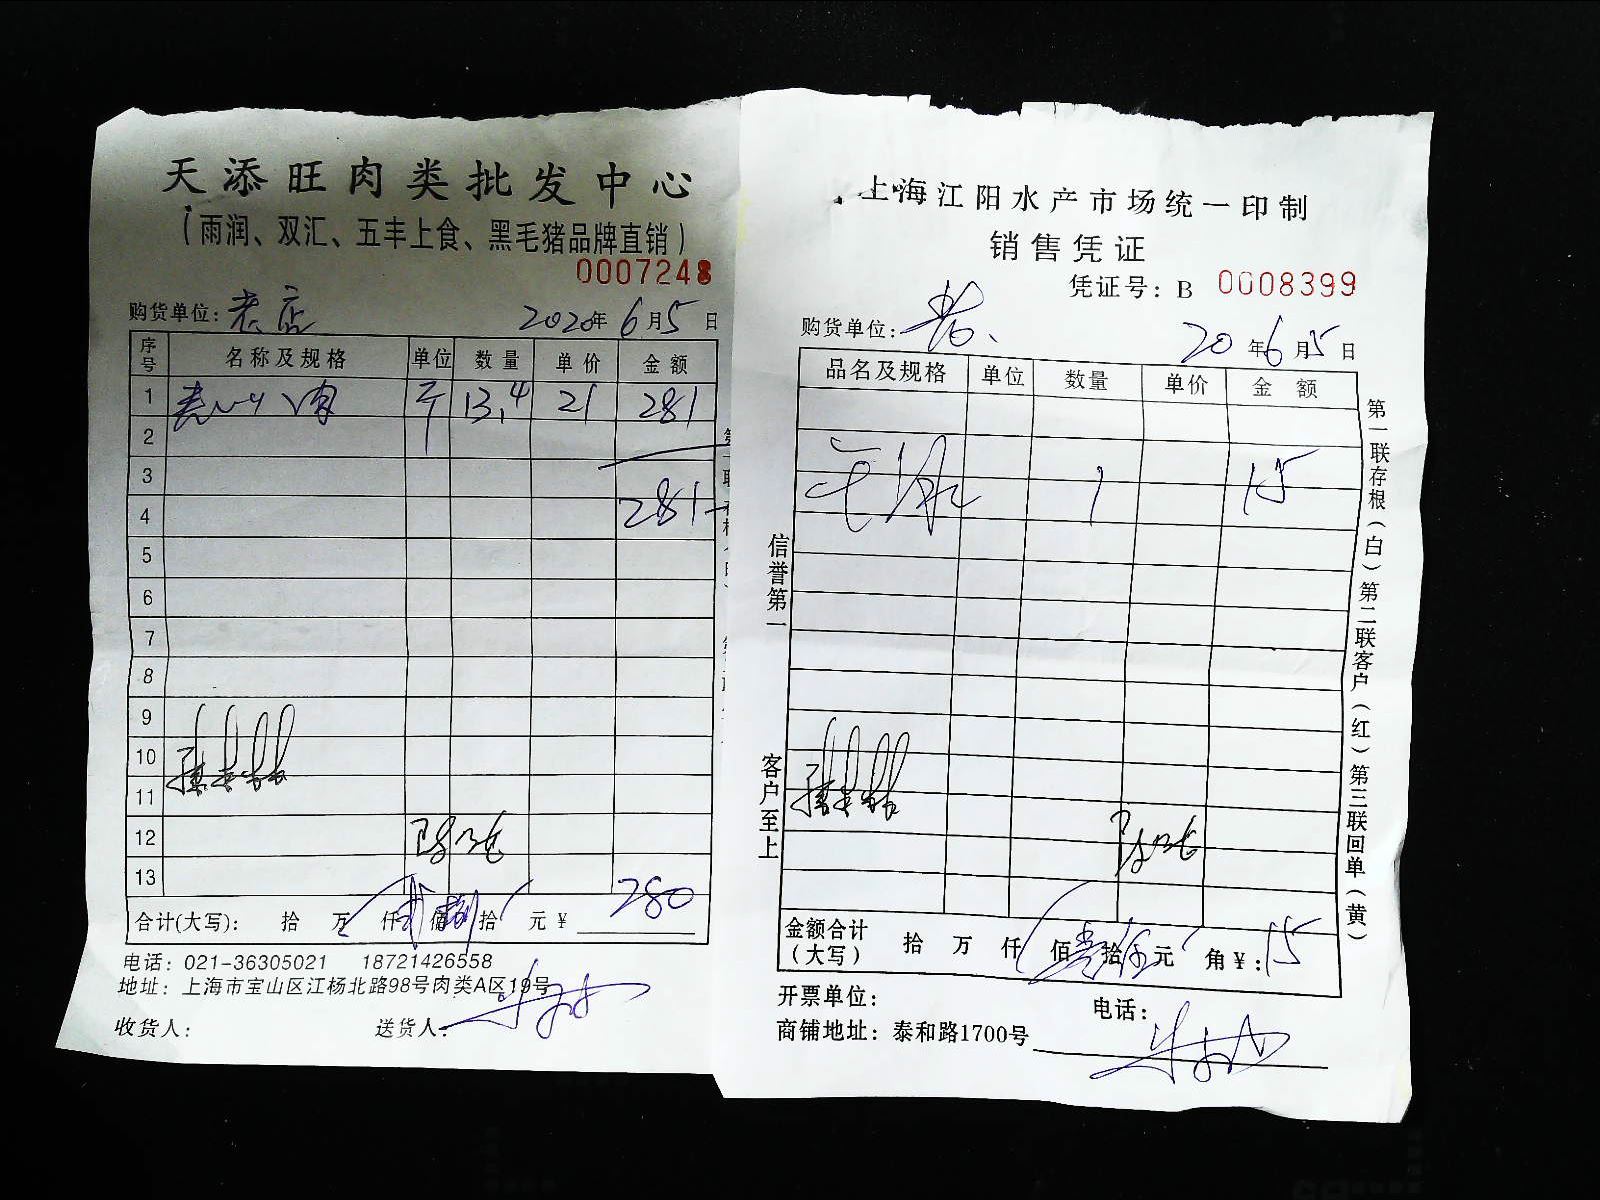 天添旺肉类批发中心
（雨润、双汇、五丰上食、黑毛猪品牌直销）
0007248
购货单位: 老店 2020年 6月5日
序号 名称及规格 单位 数量 单价 金额
1 肉 斤 13.4 21 281
2
3
4 281
5
6
7
8
9
10
11
12
13
合计(大写): 拾 万 仟 贰佰捌拾 元¥ 280
电话: 021-36305021 18721426558
地址: 上海市宝山区江杨北路98号肉类A区19号
收货人: 送货人:
上海江阳水产市场统一印制
销售凭证
凭证号: B 0008399
购货单位: 老
20年6月5日
品名及规格 单位 数量 单价 金额
1 15
金额合计（大写） 拾 万 仟 佰 壹拾伍元 角¥: 15
开票单位: 电话:
商铺地址: 泰和路1700号
信誉第一 客户至上
第一联存根（白）第二联客户（红）第三联回单（黄）